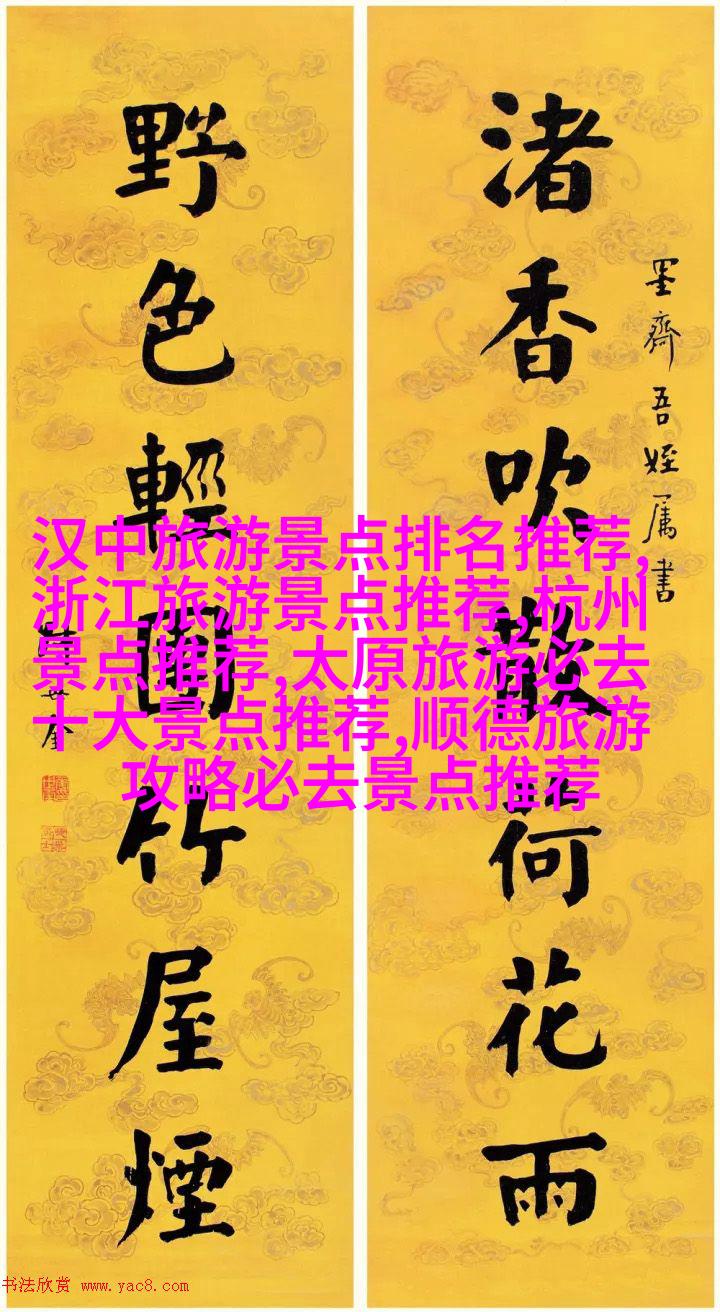 渚香吹散荷花雨
墨齋吾姪属書
野色輕團竹屋煙
汉中旅游景点排名推荐,
浙江旅游景点推荐,杭州
景点推荐,太原旅游必去
十大景点推荐,顺德旅游
攻略必去景点推荐
书法欣赏 www.yac8.com